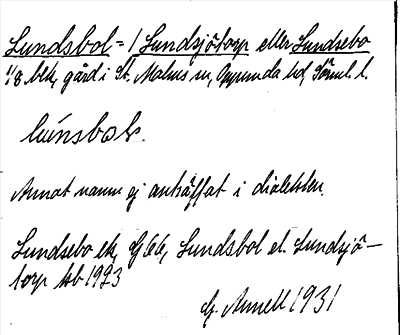 Lundsbol = / Lundsjötorp eller Lundsebo
1/8 btl, gård i St. Malms sn, Oppunda hd, Söml. l.
lúnsbok.
Annat namn ej anträffat i dialekten.
Lundsebo ek, G66, Lundsbol el. Lundsjö-
torp Jsb 1923
G. Annell 1931